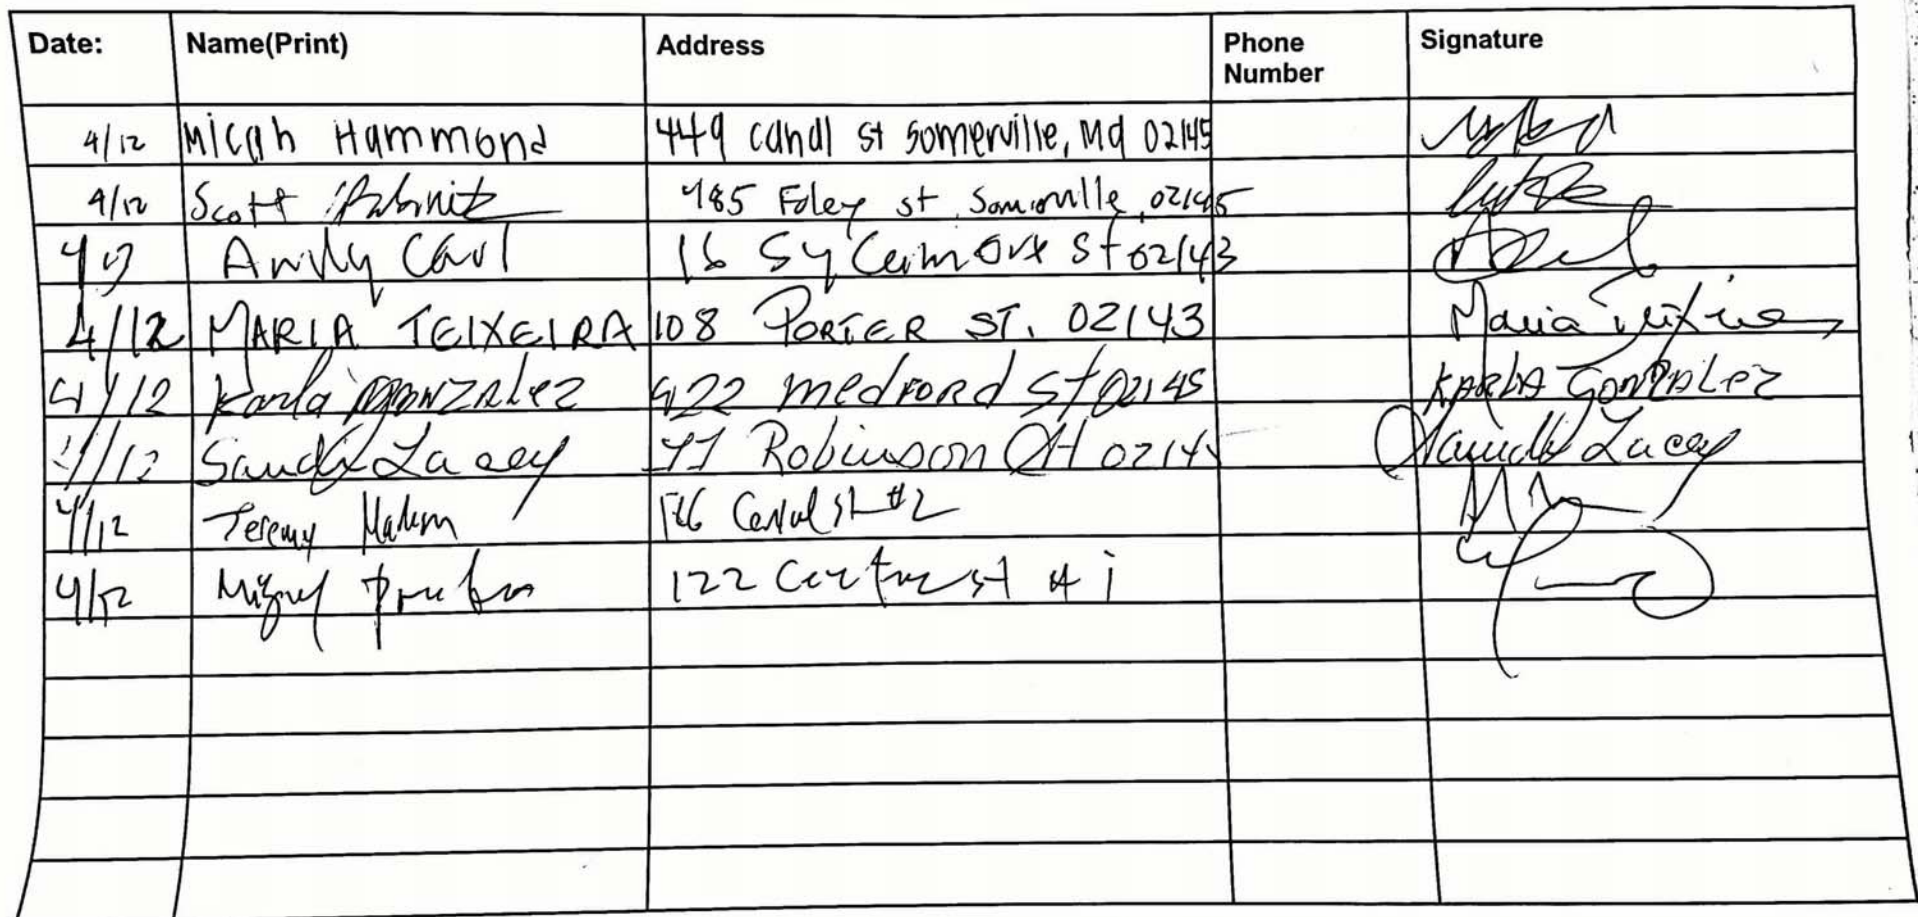 Date: Name(Print) Address Phone Number Signature
4/12 Micah Hammond 449 canal st Somerville, Ma 02145
4/12 Scott 485 Foley st Somerville, 02145
Andy Carl 16 Sycamore St 02143
4/12 MARIA TEIXEIRA 108 PORTER ST. 02143 Maria Teixeira
4/12 Karla GONZALEZ 422 medford St 02145 KARLA GONZALEZ
4/12 Sandy Lacey Robinson 0214 Sandy Lacey
4/12 Jeremy #2
4/12 Miguel 122 st # 1